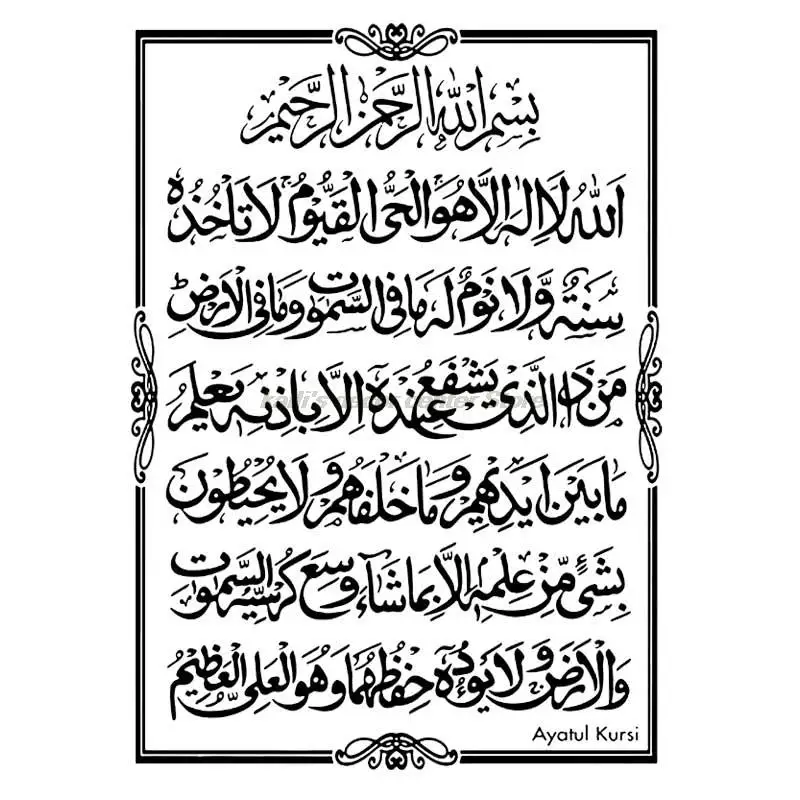 بِسْمِ اللّٰهِ الرَّحْمٰنِ الرَّحِيْمِ
اَللّٰهُ لَا اِلٰهَ اِلَّا هُوَ الْحَيُّ الْقَيُّوْمُ لَا تَاْخُذُهٗ
سِنَةٌ وَّلَا نَوْمٌ لَهٗ مَا فِي السَّمٰوٰتِ وَمَا فِي الْاَرْضِ
مَنْ ذَا الَّذِيْ يَشْفَعُ عِنْدَهٗ اِلَّا بِاِذْنِهٖ يَعْلَمُ
مَا بَيْنَ اَيْدِيْهِمْ وَمَا خَلْفَهُمْ وَلَا يُحِيْطُوْنَ
بِشَيْءٍ مِّنْ عِلْمِهٖ اِلَّا بِمَا شَآءَ وَسِعَ كُرْسِيُّهُ السَّمٰوٰتِ
وَالْاَرْضَ وَلَا يَـُٔوْدُهٗ حِفْظُهُمَا وَهُوَ الْعَلِيُّ الْعَظِيْمُ
Ayatul Kursi